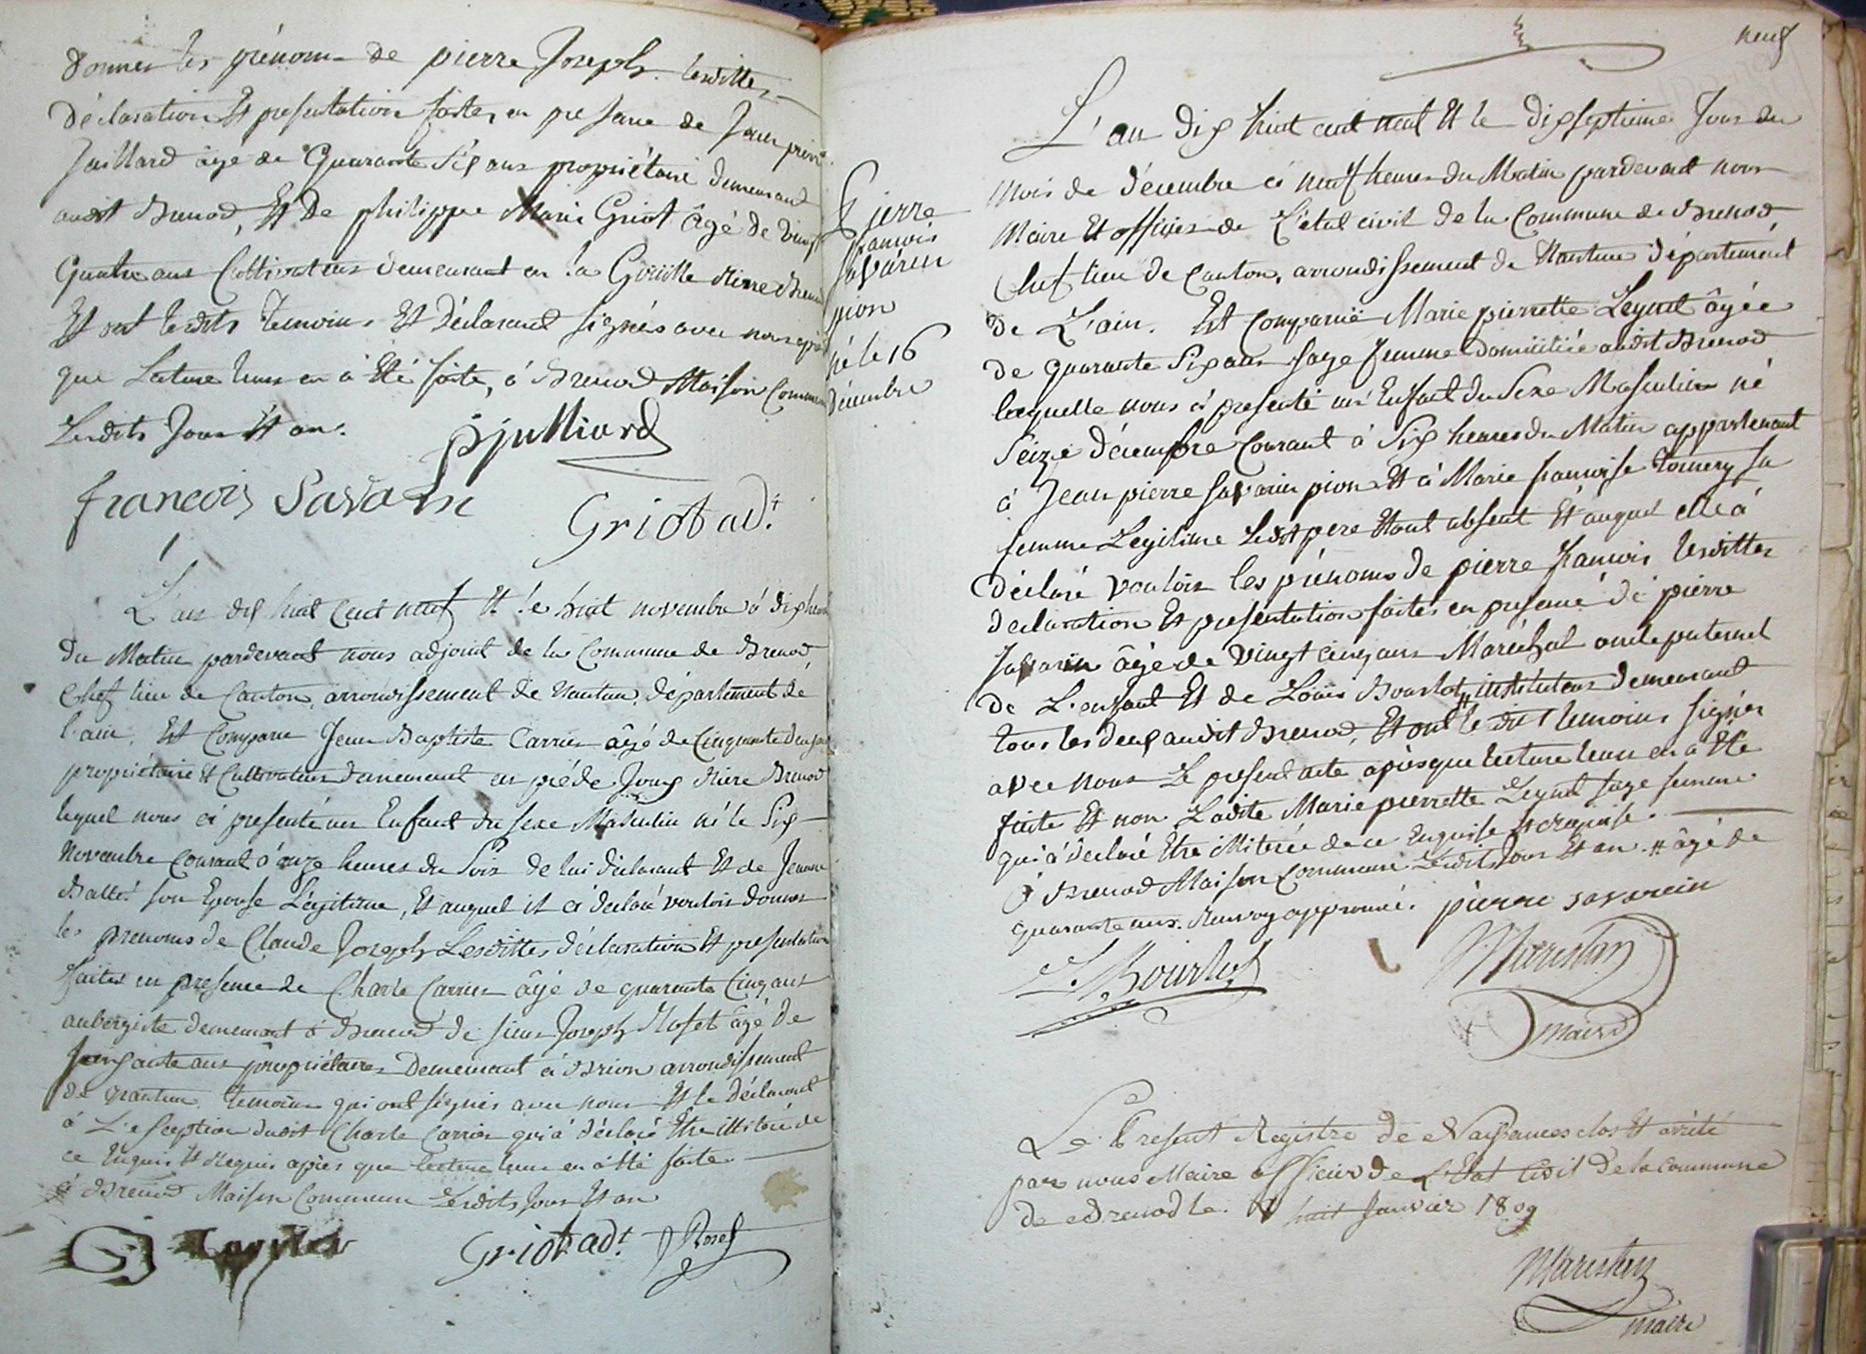 donner les prénoms de pierre Joseph. lesdittes
déclaration Et presentation faites en presence de Jean pierre
Juillard âgé de Quarante Six ans propriétaire demeurant
audit Brenod, Et De philippe Marie Griot âgé de vingt
Quatre ans Cultivateur demeurant en la Gouille Riere Brenod
Et ont lesdits temoins Et Déclarant signés avec nous après
que Lecture leur en à Eté faite, à Brenod Maison Commune
Lesdits Jour Et an.
pjulliard
francois Savarin
Griot adt.
L'an dix huit Cent neuf Et le huit novembre à dix heures
du Matin pardevant nous adjoint de la Commune de Brenod
Chef lieu de Canton, arrondissement de Nantua, département de
l'ain, Est Comparu Jean Baptiste Carrier âgé de Cinquante deux ans
propriétaire Et Cultivateur demeurant en pié de Joug Riere Brenod
lequel nous à presenté un Enfant du sexe Masculin né le Six
Novembre Courant à onze heures du Soir de lui déclarant Et de Jeanne
Ballet son Epouse Légitime, Et auquel il à déclaré vouloir donner
les prenoms de Claude Joseph Lesdittes déclaration Et presentation
faites en presence de Charle Carrier âgé de quarante Cinq ans
aubergiste demeurant à Brenod de sieur Joseph Roset âgé de
soixante ans propriétaire Demeurant à Brion arrondissement
de Nantua temoins qui ont signés avec nous Et le Déclarant
à L'exception dudit Charle Carrier qui à déclaré Etre illiteré de
ce Enquis Et Requis après que lecture leur en à Eté faite
à Brenod Maison Commune Lesdits Jour Et an
Griot adt. Rosel
Pierre
francois
Savarin
pion
né le 16
décembre
neuf
L'an dix huit cent neuf Et le dixseptieme Jour du
Mois de décembre à neuf heures du Matin pardevant nous
Maire Et officier de L'état civil de la Commune de Brenod
Chef lieu de Canton, arrondissement de Nantua département
de L'ain. Est Comparuë Marie pierrette Leynet âgée
de quarante Six ans sage femme domiciliée audit Brenod
laquelle nous à presenté un Enfant du Sexe Masculin né
Seize décembre Courant à Six heures du Matin appartenant
à Jean pierre Savarin pion Et à Marie francoise tournery sa
femme Legitime Ledit pere Etant absent Et auquel elle à
déclaré vouloir les prénoms de pierre francois lesdittes
declaration Et presentation faites en presence de pierre
Savarin âgé de vingt cinq ans Maréchal oncle paternel
de L'enfant Et de Louis Bourlot # instituteur demeurant
tous les deux audit Brenod, Et ont le dit temoins signés
avec nous Le present acte après que lecture leur en à Eté
faite Et non Ladite Marie pierrette Leynet sage femme
qui à declaré Etre illiterée de ce Enquise Et requise.
à Brenod Maison Commune Lesdits Jour Et an # âgé de
quarante ans. Renvoy approuvé. pierre savarin
L. Bourlot
Marestan
maire
Le Present Registre de Naissances clos Et arrêté
par nous Maire officier de L'Etat Civil de la Commune
de Brenod le huit Janvier 1809
Marestan
maire